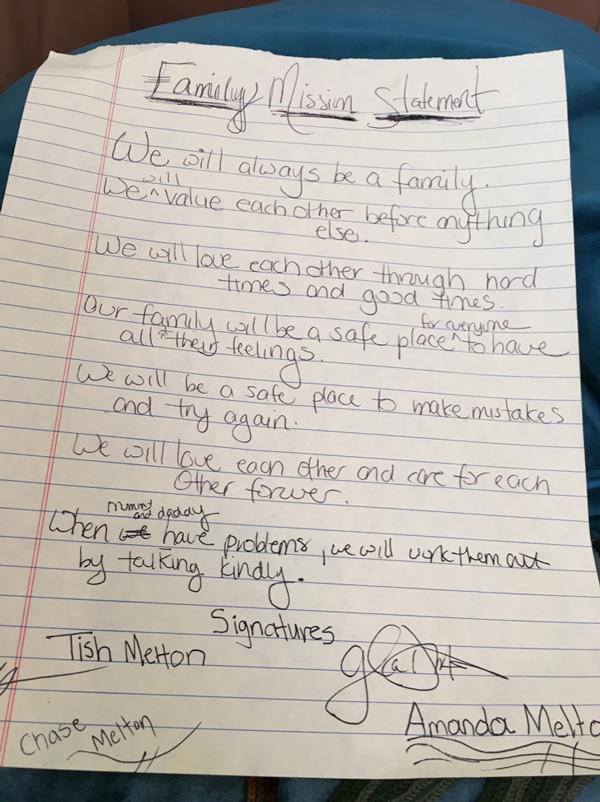 Family Mission Statement
We will always be a family.
We will value each other before anything
else.
We will love each other through hard
times and good times.
Our family will be a safe place for everyone to have
all their feelings.
We will be a safe place to make mistakes
and try again.
We will love each other and care for each
other forever.
When we mommy and daddy have problems, we will work them out
by talking kindly.
Signatures
Tish Melton
Chase Melton
Amanda Melto